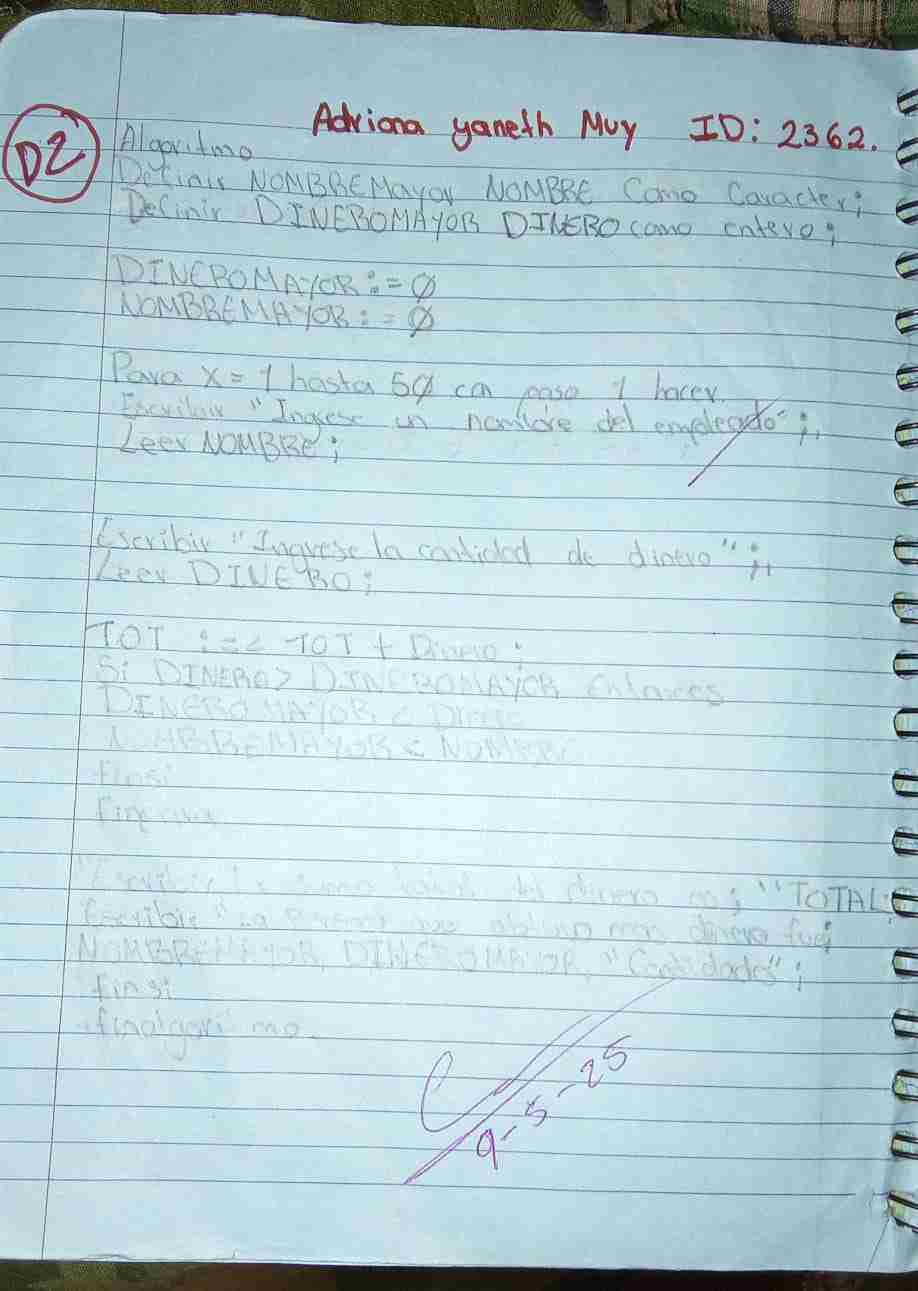 Adriana yaneth Muy ID: 2362.
D2
Algoritmo
Definir NOMBREMayor NOMBRE Como Caracter;
Definir DINEROMAYOR DINERO como entero;
DINEROMAYOR := Ø
NOMBREMAYOR := Ø
Para x = 1 hasta 5Ø con paso 1 hacer
Escribir "Ingese un nombre del empleado";
Leer NOMBRE;
Escribir "Ingrese la cantidad de dinero";
Leer DINERO;
TOT :=< TOT + Dinero;
Si DINERO > DINEROMAYOR Entonces
DINEROMAYOR <
NOMBREMAYOR < NOMBRE
finsi
Finpara
Escribir la suma total del dinero es; "TOTAL;
Escribir "La persona que obtuvo mas dinero fue;
NOMBREMAYOR, DINEROMAYOR, "Cantidades";
finsi
9-5-25